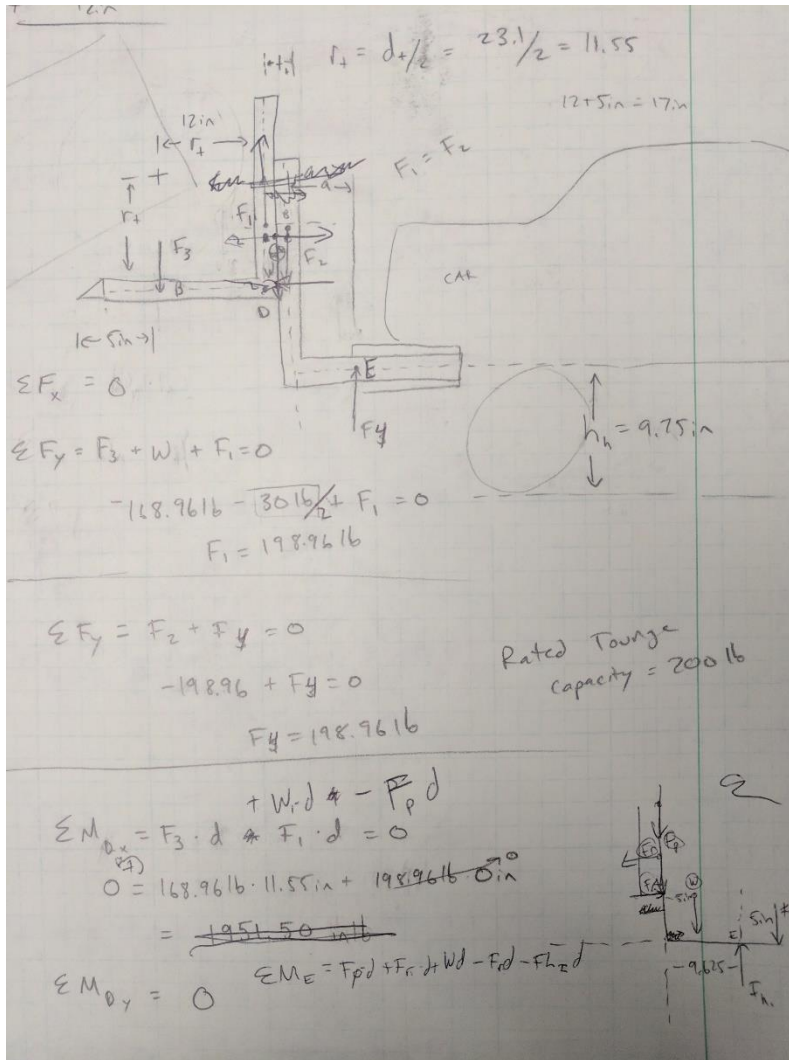 12in
r₊ = d₊/2 = 23.1/2 = 11.55
12+5in = 17in
12in
r₊
F₁ = F₂
- +
r₊
a
F₁
F₃
F₂
B
D
CAR
5in
E
Fy
hₕ = 9.75in
ΣFₓ = 0
ΣFy = F₃ + W₁ + F₁ = 0
-168.96lb - 30lb/2 + F₁ = 0
F₁ = 198.96lb
ΣFy = F₂ + Fy = 0
-198.96 + Fy = 0
Fy = 198.96lb
Rated Tounge
capacity = 200lb
+ W₁·d - Fₚd
ΣM_Dx = F₃·d F₁·d = 0
0 = 168.96lb·11.55in + 198.96lb·0in
0
= 1951.50 inlb
ΣM_Dy = 0
ΣM_E = Fₚd + Fᵣ·d + Wd - Fᵣd - Fh_Id
W
5in
E
9.625